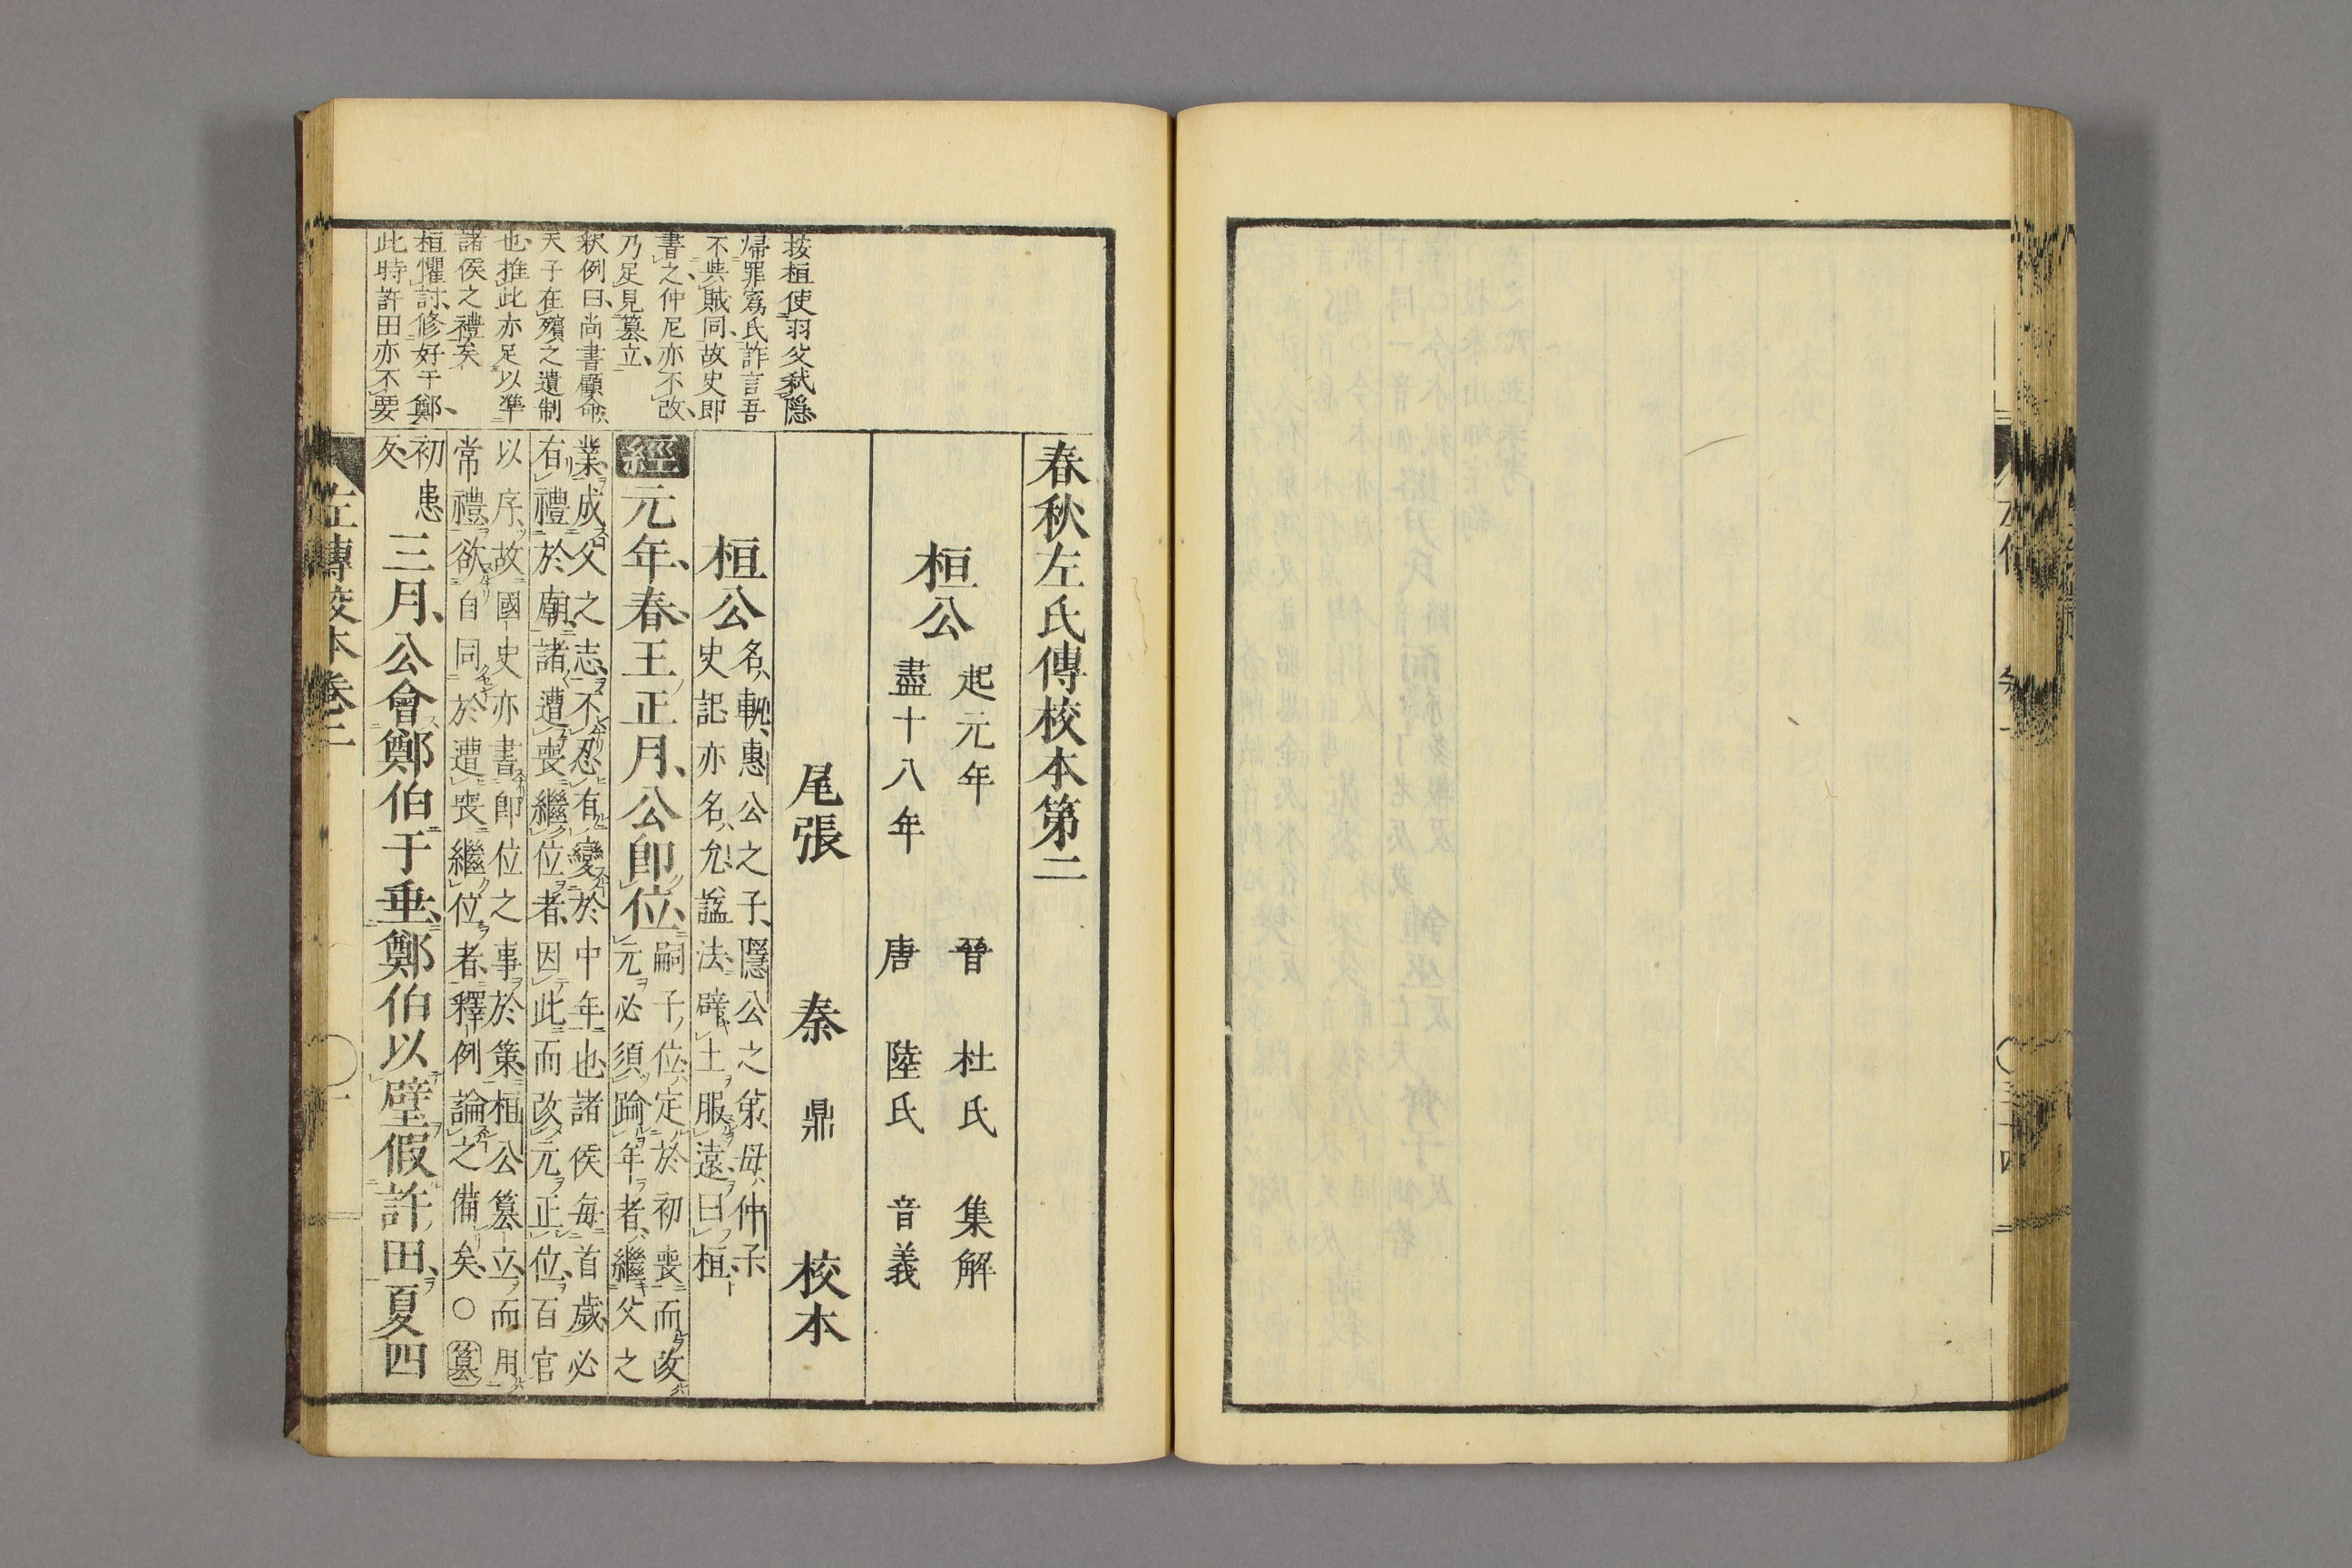 春秋左氏傳校本第二
桓公
起元年
盡十八年
晉 杜氏 集解
唐 陸氏 音義
尾張 秦 鼎 校本
桓公
名軌惠公之子隱公之弟母仲子
史記亦名允諡法辟土服遠曰桓
經元年春王正月公即位
嗣子位定於初喪而改
元必須踰年者繼父之
業成父之志不忍有變於中年也諸侯每首歲必
有禮於廟諸遭喪繼位者因此而改元正位百官
以序故國史亦書即位之事於策桓公篡立而用
常禮欲自同於遭喪繼位者釋例論之備矣○篡
初患
反
三月公會鄭伯于垂鄭伯以璧假許田夏四
按桓使羽父弒隱
帰罪寪氏詐言吾
不與賊同故史即
書之仲尼亦不改
乃足見篡立
釈例曰尚書顧命
天子在殯之遺制
也推此亦足以準
諸侯之禮矣
桓懼討修好于鄭
此時許田亦不要
左傳校本卷二
一